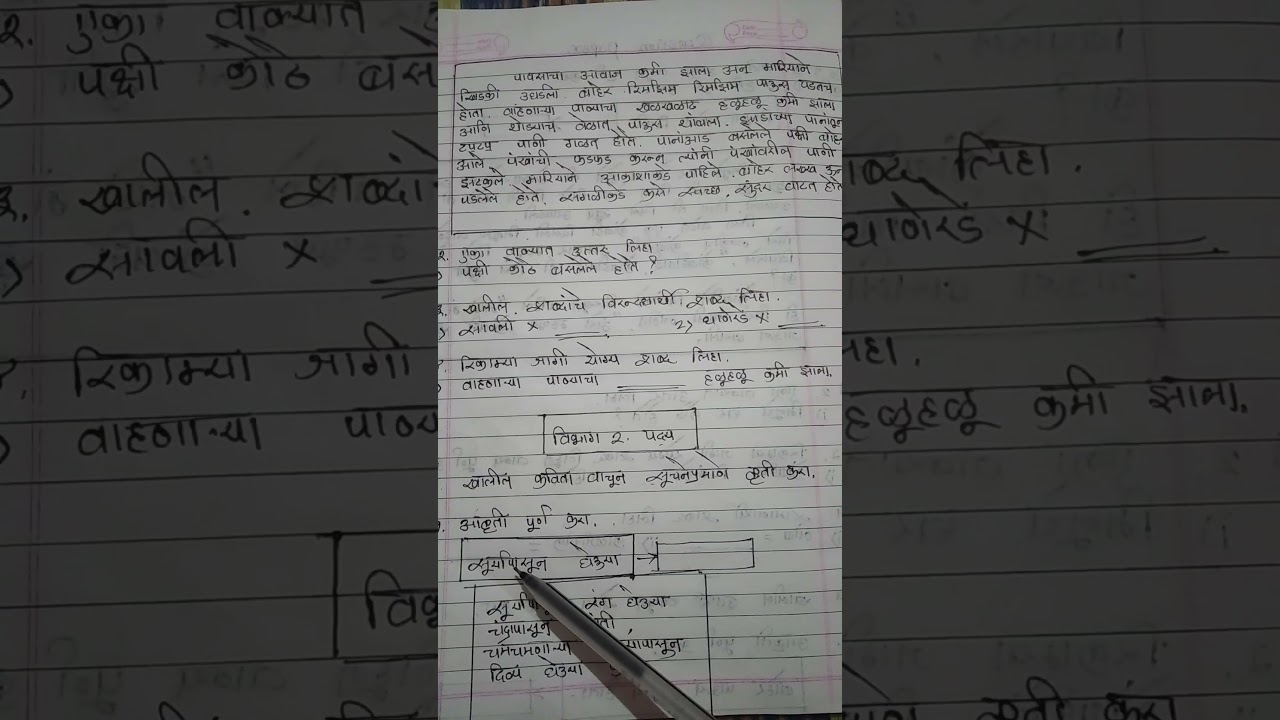 पावसाचा आवाज कमी झाला अन मारियाने
खिडकी उघडली. बाहेर रिमझिम रिमझिम पाऊस पडतच
होता. वाहणाऱ्या पाण्याचा खळखळाट हळूहळू कमी झाला
आणि थोड्याच वेळात पाऊस थांबला. झाडाच्या पानांतून
टपटप पाणी गळत होते. पानांआड बसलेले पक्षी बाहेर
आले पंखांची फडफड करून त्यांनी पंखांवरील पाणी
झटकले मारियाने आकाशाकडे पाहिले. बाहेर लख्ख
पडलेले होते. सगळीकडे कसे स्वच्छ, सुंदर वाटत होते
२. एका वाक्यात उत्तर लिहा
पक्षी कोठे बसलेले होते ?
३. खालील शब्दांचे विरुद्धार्थी शब्द लिहा.
सावली × ____ २) थोगरेडे × ____
रिकाम्या जागी योग्य शब्द लिहा.
वाहणाऱ्या पाण्याचा ____ हळूहळू कमी झाला.
विभाग २. पद्य
खालील कविता वाचून सूचनेप्रमाणे कृती करा.
आकृती पूर्ण करा.
सूर्यापासून घेऊया →
रंग घेऊया
चंद्रापासून
चमचमणाऱ्या
दिव्य घेऊया